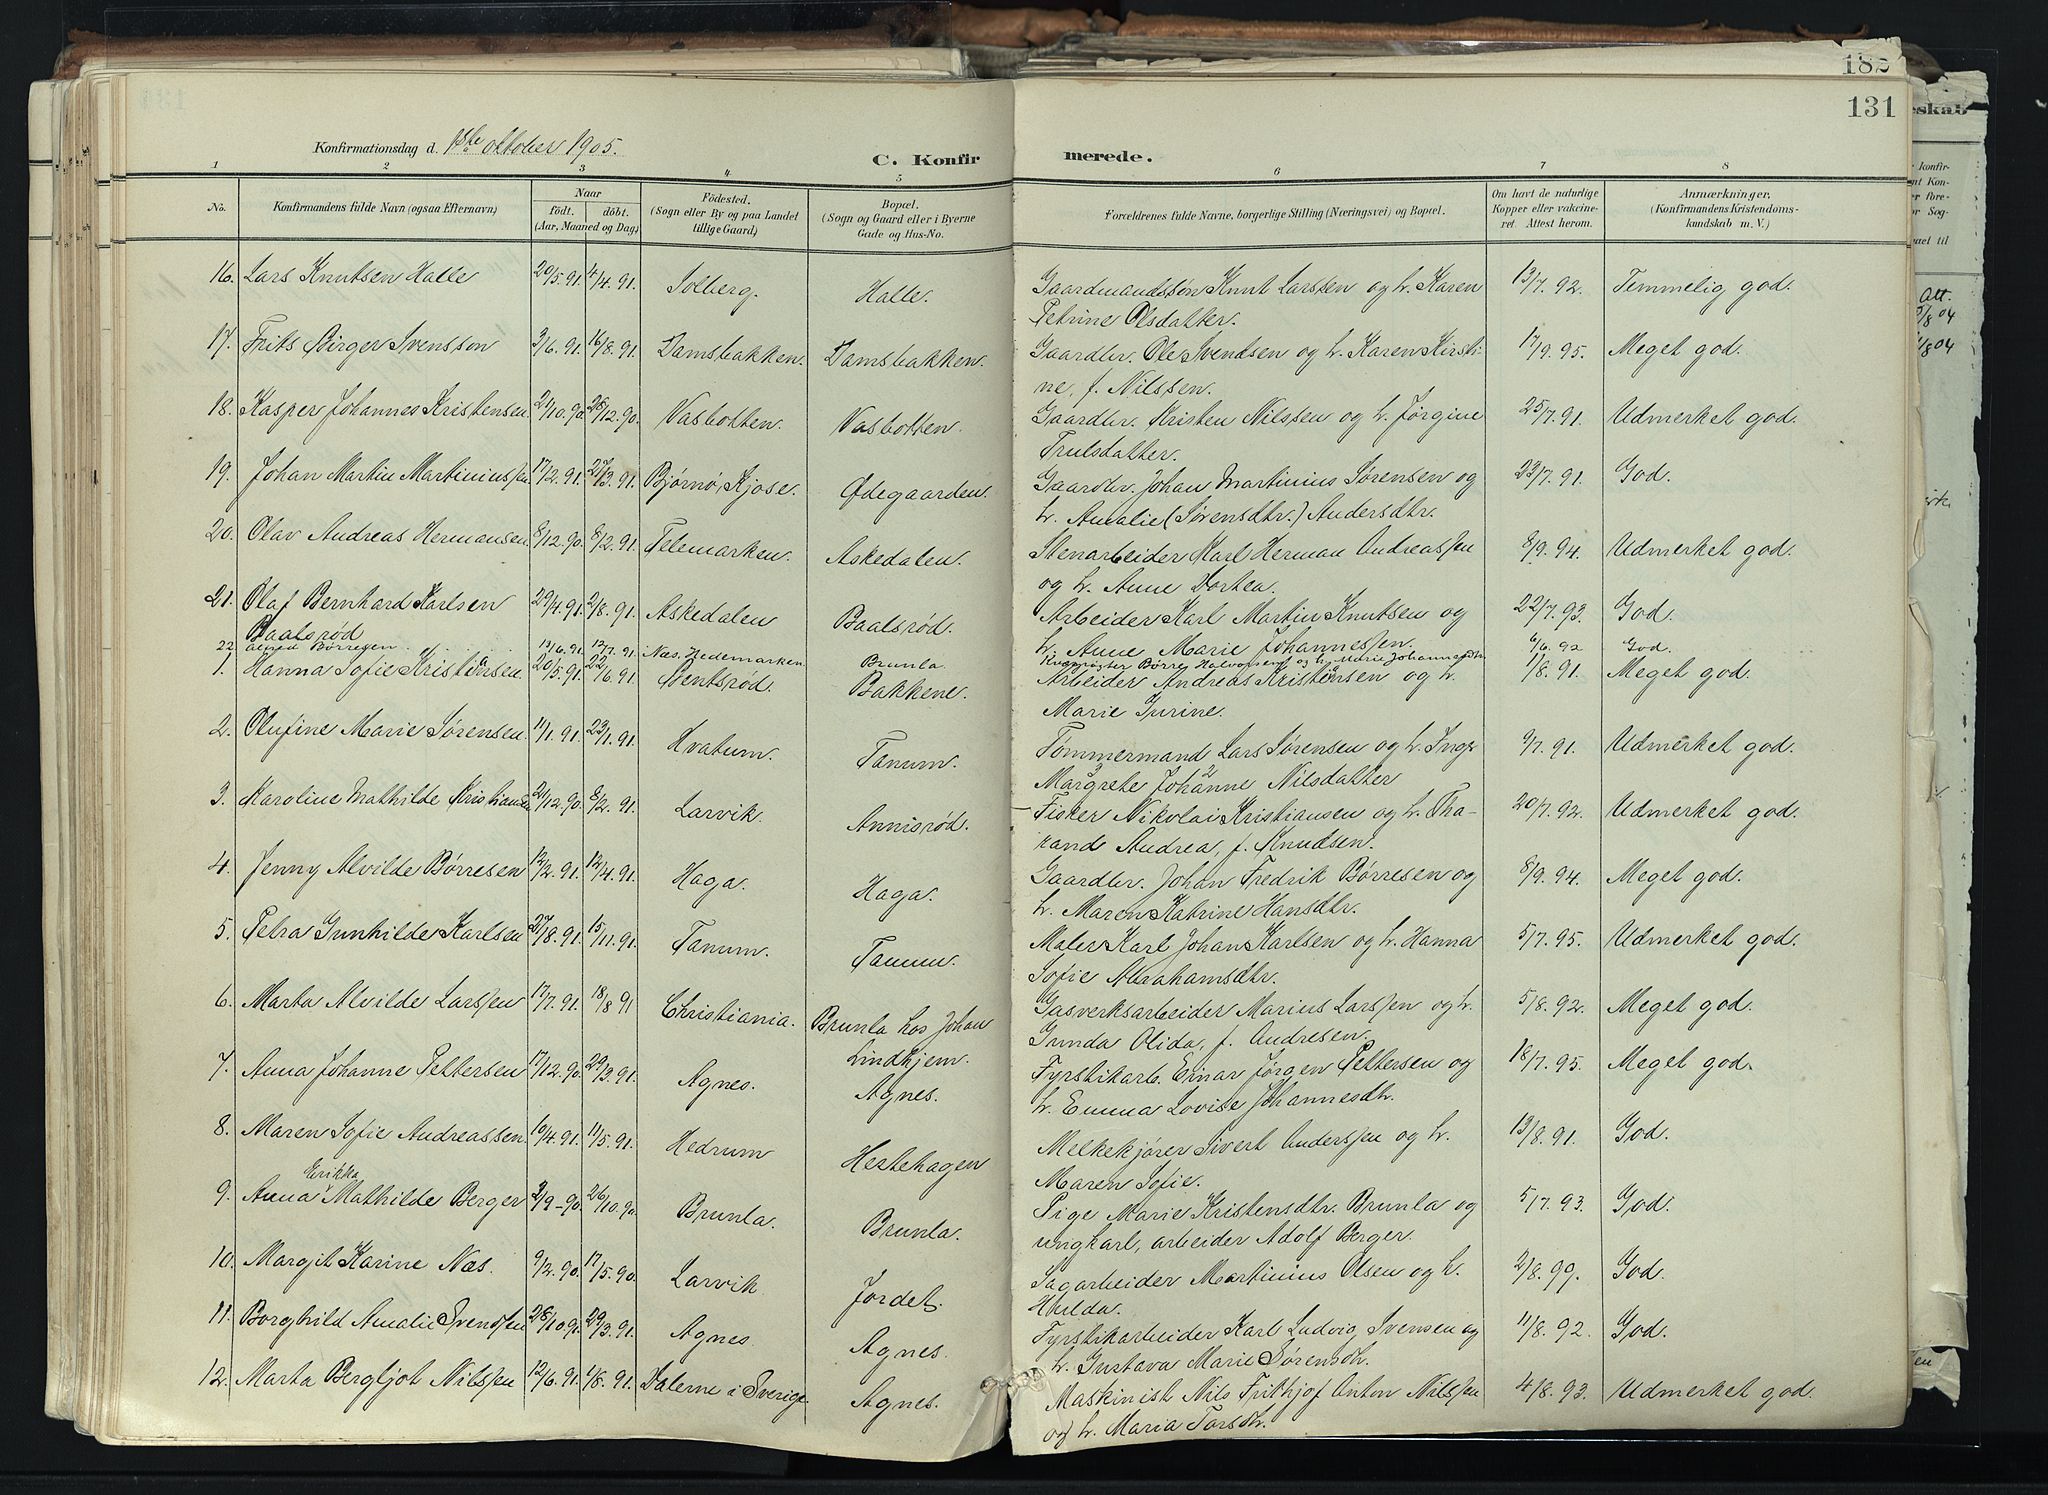 182
131
Konfirmationsdag d. 1ste oktober 1905.
C. Konfir merede.
1 2 3 4 5 6 7 8
No.
Konfirmandens fulde Navn (ogsaa Efternavn).
Naar
født. døbt.
(Aar, Maaned og Dag)
Födested.
(Sogn eller By og paa Landet
tillige Gaard)
Bopæl.
(Sogn og Gaard eller i Byerne
Gade og Hus-No.
Forældrenes fulde Navne, borgerlige Stilling (Næringsvei) og Bopæl.
Om havt de naturlige
Kopper eller vakcine-
ret. Attest herom.
Anmærkninger,
(Konfirmandens Kristendoms-
kundskab m. V.)
16. Lars Knutsen Halle 20/5. 91. 4/4. 91. Solberg. Halle. Gaardmandssøn Knut Larssen og h. Karen 13/7. 92. Temmelig god.
Petrine Olsdatter.
17. Frits Birger Svensson 3/6. 91. 16/8. 91. Damsbakken. Damsbakken. Gaardbr. Ole Svendsen og h. Karen Kirsti- 17/9. 95. Meget god.
ne, f. Nilssen.
18. Kasper Johannes Kristensen 21/10. 90. 28/12. 90. Vasbotten. Vasbotten. Gaardbr. Kristen Nilssen og h. Jørgine 25/7. 91. Udmerket god.
Trulsdatter.
19. Johan Martin Martiniussen 17/2. 91. 27/3. 91. Bjørnø, Kjose. Ødegaarden. Gaardbr. Johan Martinius Sørensen og 23/7. 91. God.
h. Amalie (Sørensdtr.) Andersdtr.
20. Olav Andreas Hermansen 8/12. 90. 8/2. 91. Telemarken. Askedalen. Stenarbeider Karl Herman Andreassen 8/9. 94. Udmerket god.
og h. Anne Dortea.
21. Olaf Bernhard Karlsen 29/4. 91. 2/8. 91. Askedalen Baalsrød. Arbeider Karl Martin Knutsen og 22/7. 93. God.
Baalsrød h. Anne Marie Johannessen.
22 Alfred Børresen 13/6. 91 12/7. 91 Næs. Hedemarken Brunla Børre Halvorsen og h. Marie Johannesdtr. 6/6. 92 God.
1. Hanna Sofie Kristiansen 20/5. 91. 22/6. 91.Øentsrød. Bakkene. Arbeider Andreas Kristiansen og h. 1/8. 91. Meget god.
Marie Jurine.
2. Olufine Marie Sørensen 11/1. 91. 23/1. 91. Hvatum. Tanum. Tømmermand Lars Sørensen og h. Inger 9/7. 91. Udmerket god.
Margrete Johanne Nilsdatter
3. Karoline Mathilde Kristiansen 21/12. 90. 8/2. 91. Larvik. Annisrød. Fisker Nikolai Kristiansen og h. Tha- 20/7. 92. Udmerket god.
rand Andrea, f. Knudsen.
4. Jenny Alvilde Børresen 12/2. 91. 12/4. 91. Haga. Haga. Gaardbr. Johan Fredrik Børresen og 8/9. 94. Meget god.
h. Maren Katrine Hansdtr.
5. Petra Gunhilde Karlsen 27/8. 91. 15/11. 91. Tanum. Tanum. Maler Karl Johan Karlsen og h. Hanna 5/7. 95. Udmerket god.
Sofie Abrahamsdtr.
6. Marta Alvilde Larssen 17/7. 91. 18/8 91 Christiania. Brunla hos Johan Gasverksarbeider Marius Larssen og h. 5/8. 92. Meget god.
Lindhjem. Gunda Olida, f. Andresen.
7. Anna Johanne Pettersen 17/12. 90. 29/3. 91. Agnes. Agnes. Fyrstikarb. Einar Jørgen Pettersen og 18/7. 95. Meget god.
h. Emma Lovise Johannesdtr.
8. Maren Sofie Andreassen 16/4. 91. 11/5. 91. Hedrum Hestehagen Melkekjører Sivert Anderssen og h. 13/8. 91. God.
Maren Sofie.
9. Anna Erikka Mathilde Berger 3/9-90. 26/10. 90. Brunla. Brunla. Pige Marie Kristensdtr. Brunla og 5/7. 93. God.
ungkarl, arbeider Adolf Berger.
10. Margit Karine Næs. 9/2. 90. 17/5. 90. Larvik Jordet. Sagarbeider Martinius Olsen og h. 2/8. 99. God.
Hulda.
11. Borghild Amalie Svendsen 28/10. 90. 29/3. 91. Agnes Agnes. Fyrstikarbeider Karl Ludvig Svensen og 11/8. 92. God.
h. Gustava Marie Sørensdtr.
12. Marta Bergljot Nilssen 12/6. 91. 1/8. 91. Dalerne i Sverige. Agnes. Maskinist Nils Frithjof Anton Nilssen 4/8. 93. Udmerket god.
og h. Maria Larsdtr.
eskab
Att.